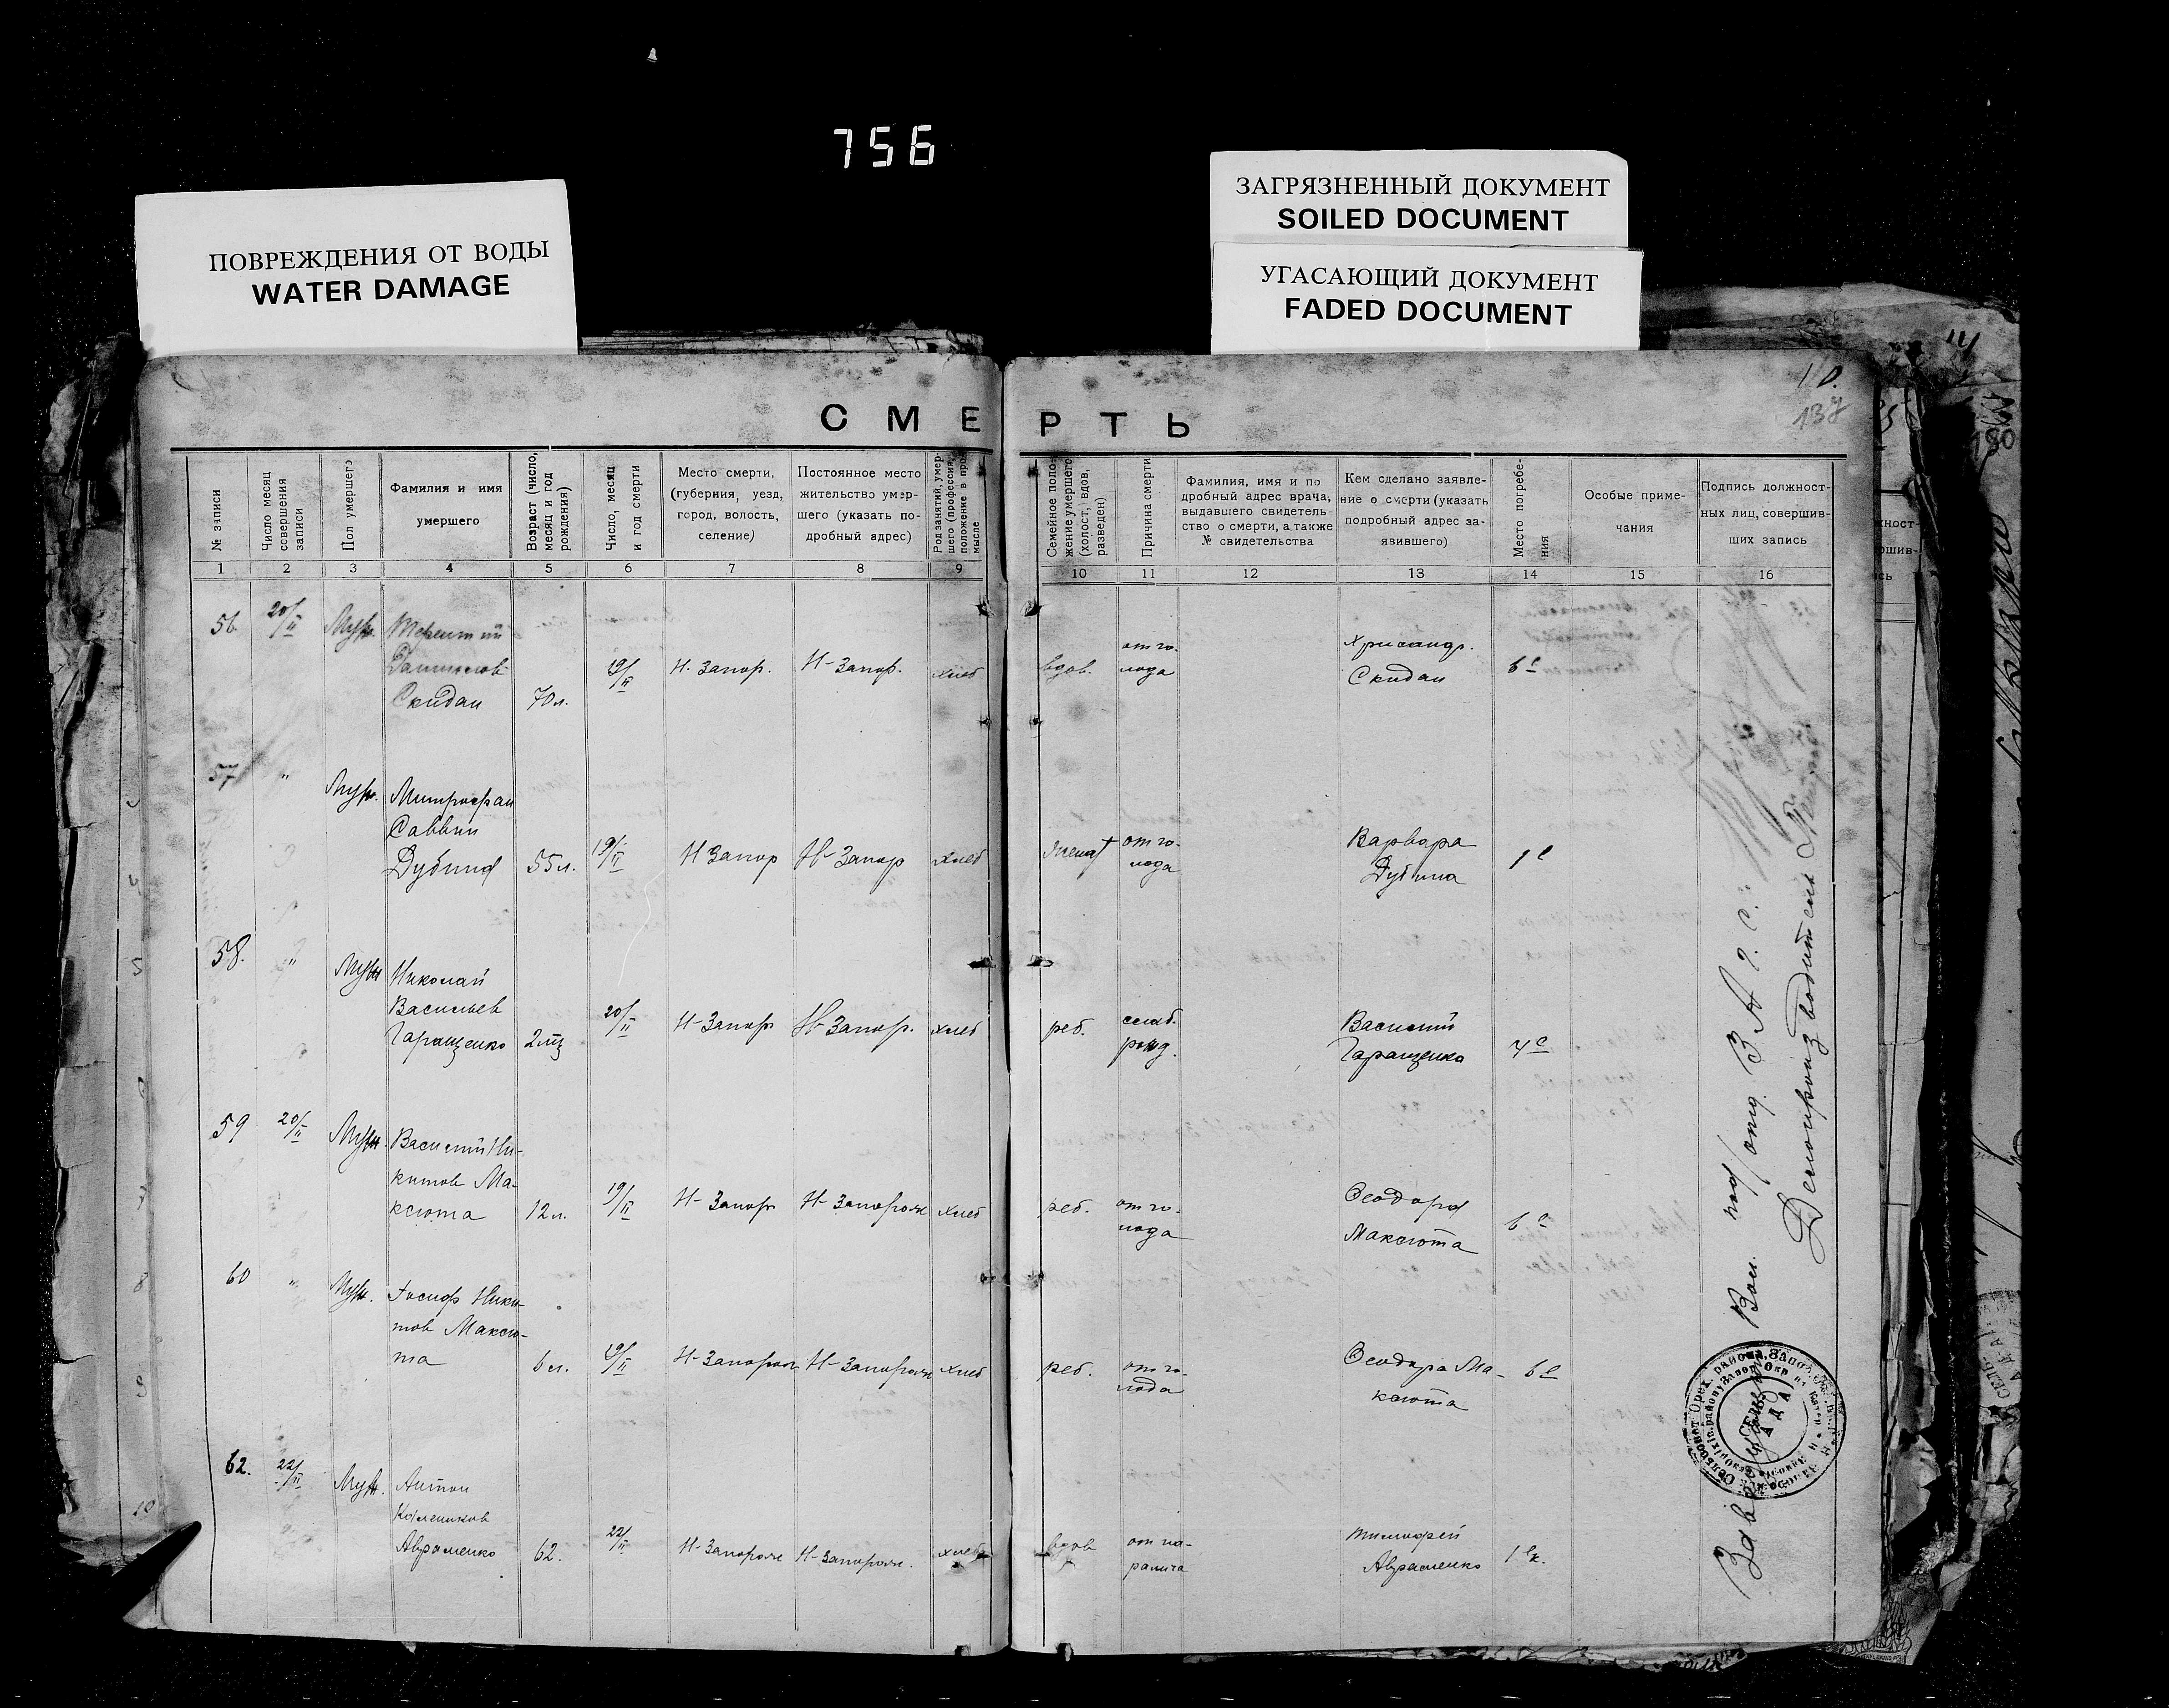 756
ПОВРЕЖДЕНИЯ ОТ ВОДЫ
WATER DAMAGE
ЗАГРЯЗНЕННЫЙ ДОКУМЕНТ
SOILED DOCUMENT
УГАСАЮЩИЙ ДОКУМЕНТ
FADED DOCUMENT
137
СМЕРТЬ
№ записи
Число месяц
совершения
записи
Пол умершего
Фамилия и имя
умершего
Возраст (число,
месяц и год
рождения)
Число, месяц
и год смерти
Место смерти,
(губерния, уезд,
город, волость,
селение)
Постоянное место
жительство умер-
шего (указать по-
дробный адрес)
Род занятий, умер-
шего (профессия,
положение в про-
мысле
Семейное поло-
жение умершего
(холост, вдов,
разведен)
Причина смерти
Фамилия, имя и по
дробный адрес врача,
выдавшего свидетель-
ство о смерти, а также
№ свидетельства
Кем сделано заявле-
ние о смерти (указать
подробный адрес за-
язившего)
Место погребе-
ния
Особые приме-
чания
Подпись должност-
ных лиц, совершив-
ших запись
1 2 3 4 5 6 7 8 9 10 11 12 13 14 15 16
56 20/II Муж.
Скидан 70 л. 19/II Н-Запор. Н-Запор. хлеб вдов. от го-
лода
Хрисанф.
Скидан 6 е
57 " Муж. Митрофан
Саввин
Дубина 55 л. 19/II Н Запор Н-Запор хлеб женат от го-
лода
Варвара
Дубина 1 е
58. " Муж Николай
Васильев
Гаращенко 2 мц 20/II Н-Запор Н-Запор. хлеб реб. слаб.
рожд.
Василий
Гаращенко
59 20/II Муж. Василий Ни-
китов Ма-
ксюта 12 л. 19/II Н-Запор Н-Запорож хлеб реб. от го-
лода
Феодора
Максюта 6 е
60 " Муж. Иосиф Ники-
тов Максю-
та 6 л. 19/II Н-Запорож Н-Запорож хлеб реб. от го-
лода
Феодора Ма-
ксюта 6 е
62. 22/II Муж. Антон
Авраменко 62. 22/II Н-Запорож Н-Запорож. хлеб вдов от па-
ралича
Тимофей
Авраменко
Вол. под/отд. З. А. Г. С.
Делопроизводитель